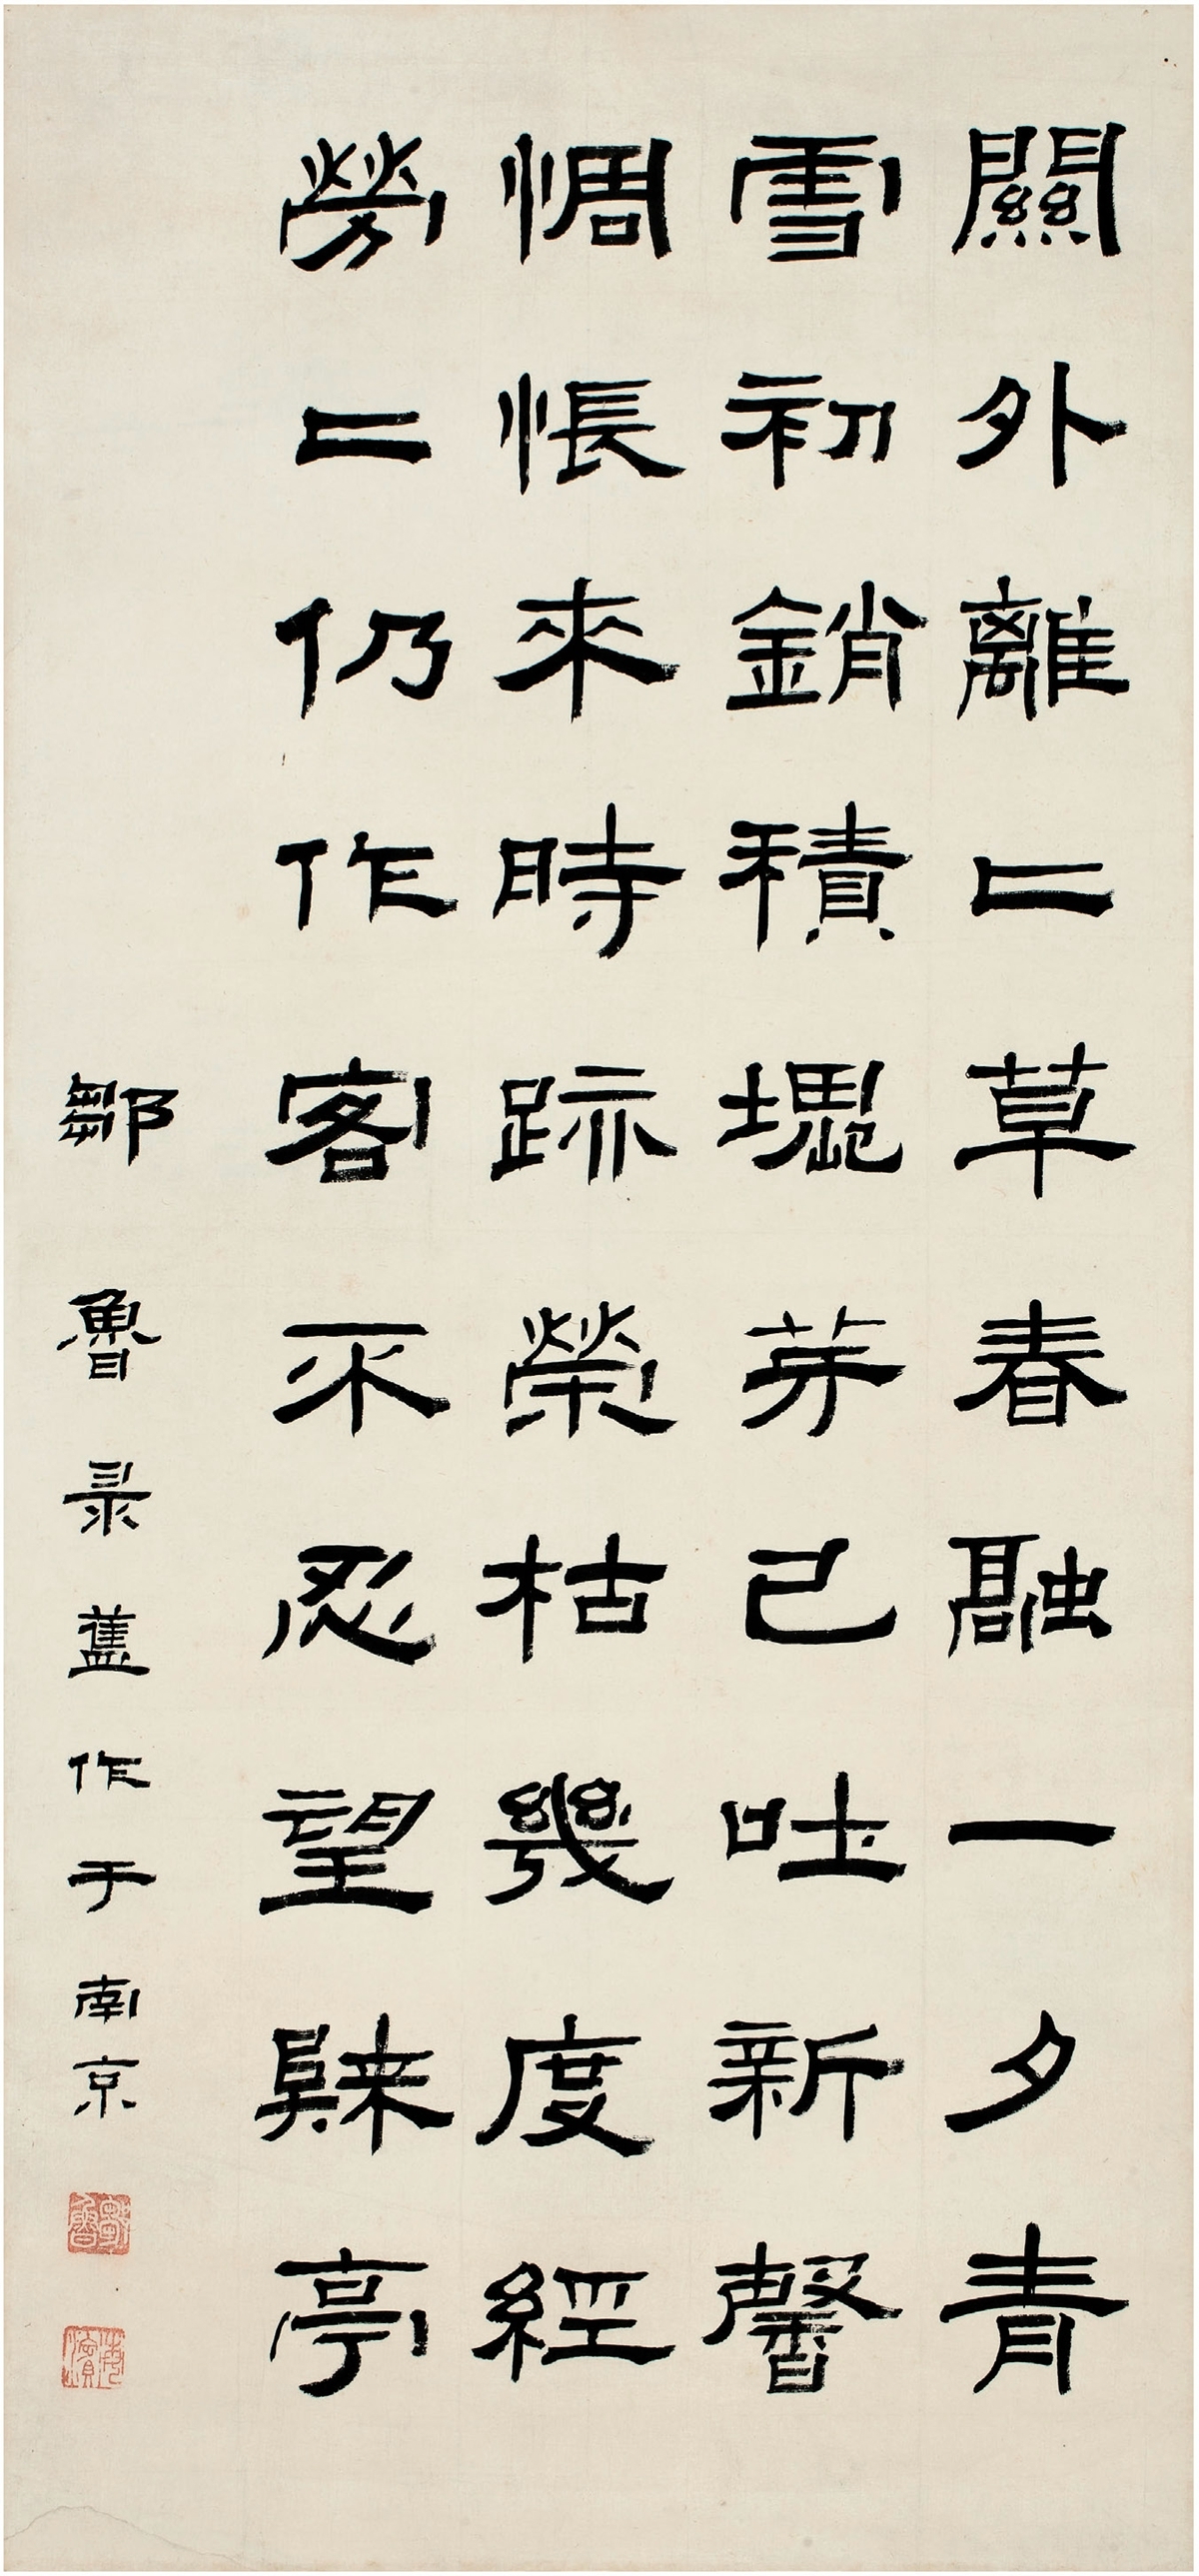 關外離〻草春融一夕青
雪初銷積芽已吐新馨
惆悵來時跡榮枯幾度經
勞〻仍作客不忍望亭
鄒魯录舊作于南京
鄒魯
海濱